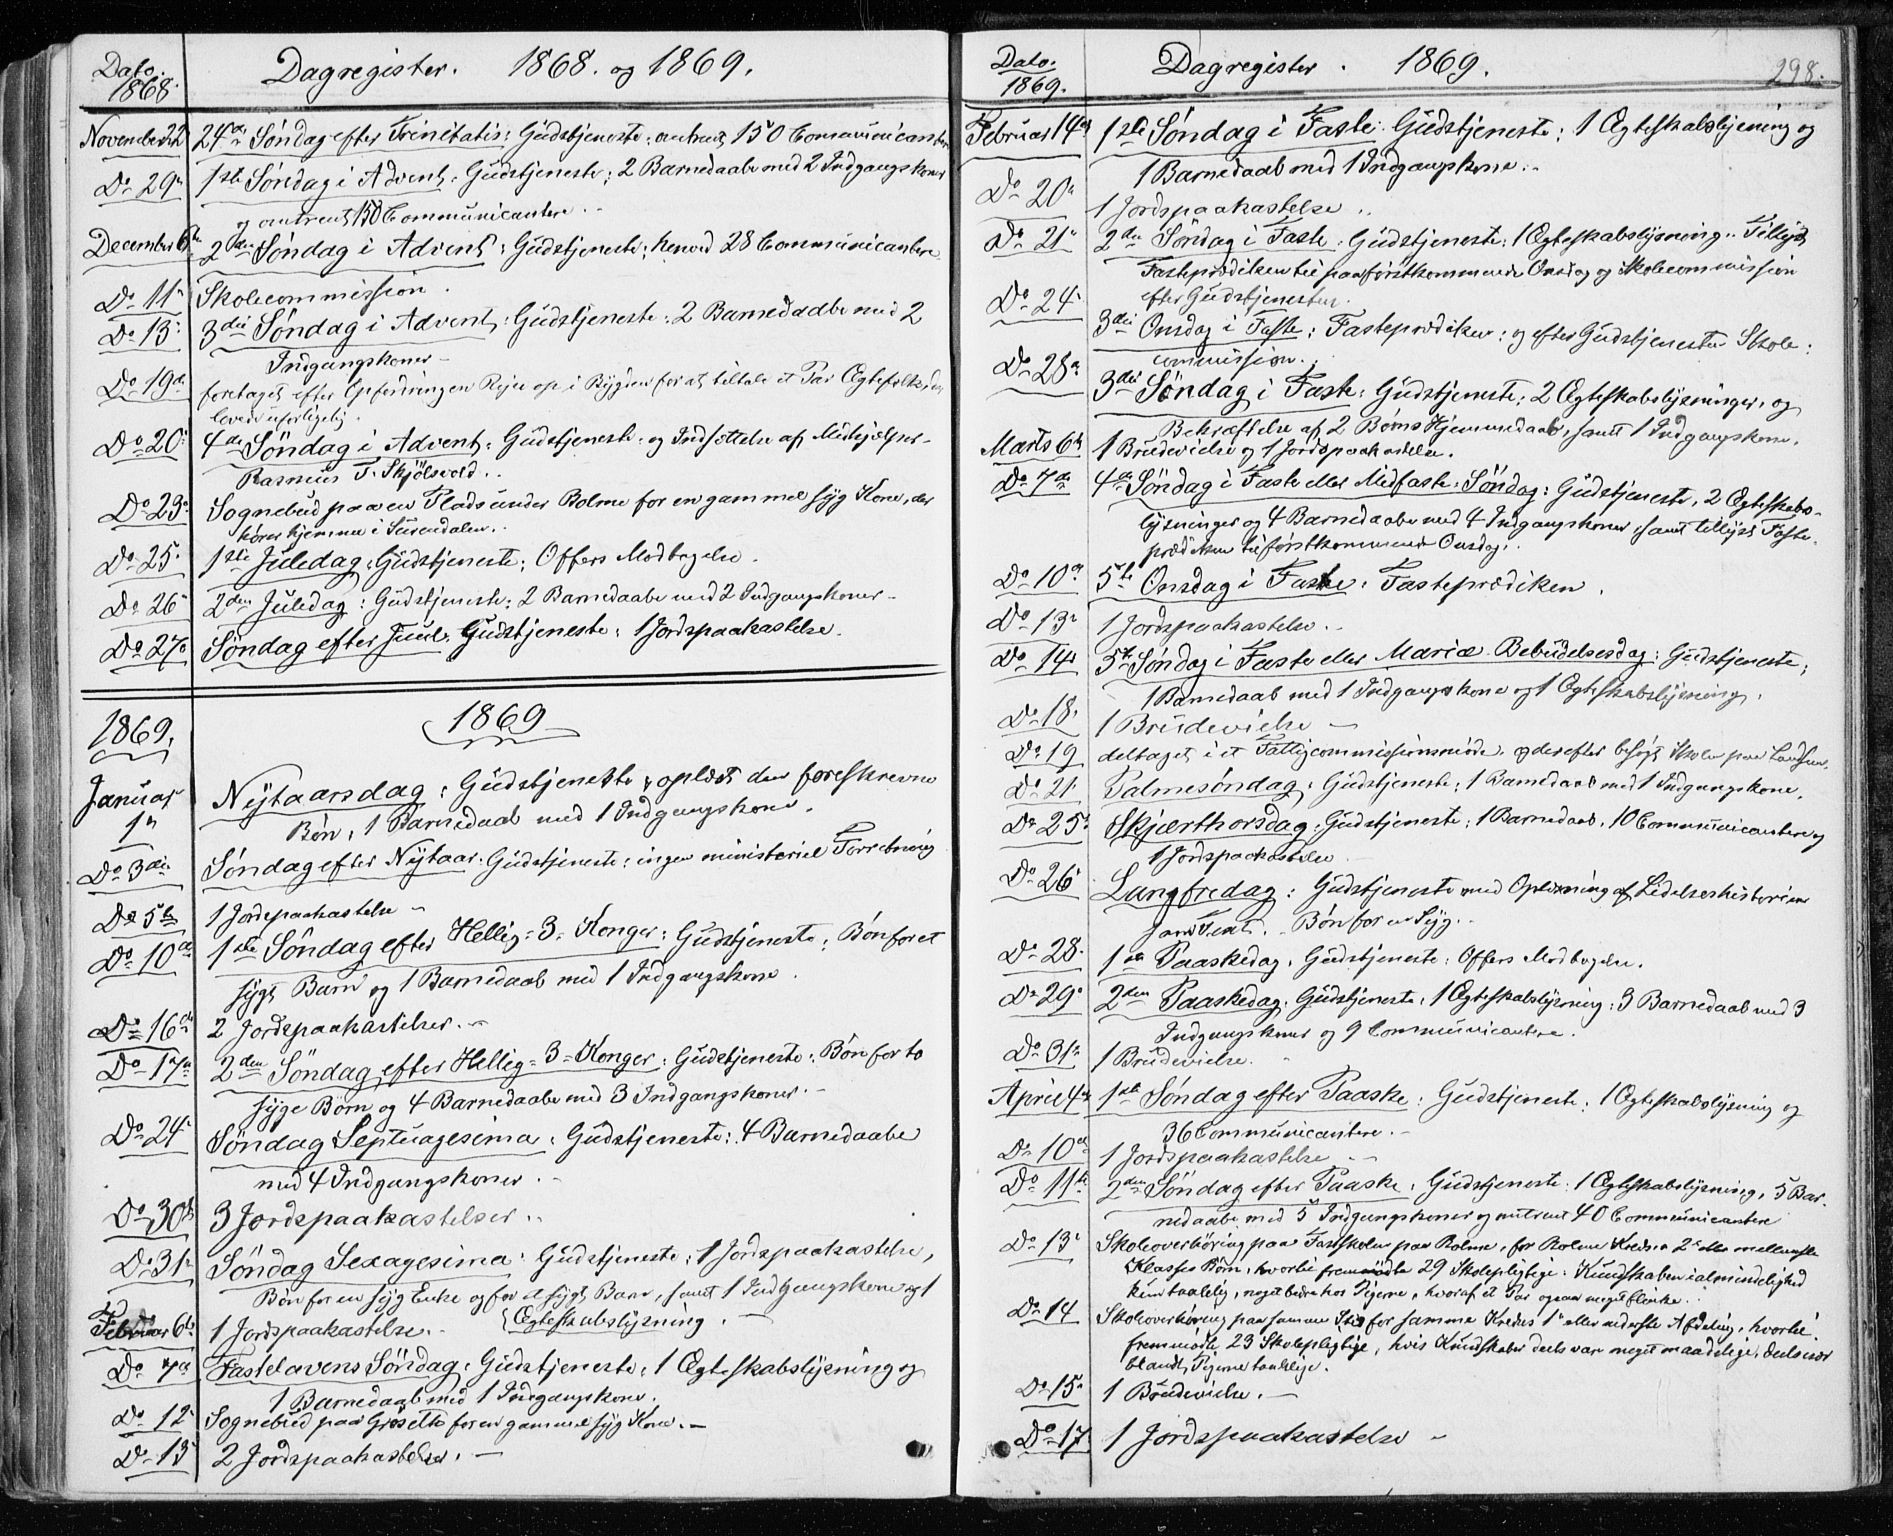 Dato. 1868. Dagregister. 1868. og 1869.
November 22 24de Søndag efter Trinitatis: Gudstjeneste; omtrent 150 Communicantere
Do 29n 1ste Søndag i Advent: Gudstjeneste; 2 Barnedaabe med 2 Indgangskoner
og omtrent 150 Communicantere..
December 6te 2den Søndag i Advent: Gudstjeneste; henved 28 Communicantere
Do 11te Skolecommission.
Do 13: 3die Søndag i Advent: Gudstjeneste: 2 Barnedaabe med 2
Indgangskoner-
Do 19de foretaget efter Opfordringen Reise op i Bygden for at tiltale et Par Ægtefolk, der
levede uforligelig.
Do 20: 4de Søndag i Advent: Gudstjeneste og Indsættelse af Medhjælper-
Rasmus T. Skjølsvold..
Do 23: Sognebud paa en Plads under Bolme for en gammel syg Kone, der
hører hjemme i Surendalen..
Do 25. 1ste Juledag: Gudstjeneste; Offers Modtagelse.
Do 26 2den Juledag: Gudstjeneste: 2 Barnedaabe med 2 Indgangskoner-
Do 27 Søndag efter Juul: Gudstjeneste: 1 Jordspaakastelse.
1869. 1869
Januar 1n Nytaarsdag: Gudstjeneste & oplæst den foreskrevne
Bøn; 1 Barnedaab med 1 Indgangskone.
Do 3die Søndag efter Nytaar: Gudstjeneste: ingen ministeriel Forretning
Do 5te 1 Jordspaakastelse -
Do 10de 1ste Søndag efter Hellig=3=Konger: Gudstjeneste: Bøn for et
sygt Barn og 1 Barnedaab med 1 Indgangskone.
Do 16de 2 Jordspaakastelser.-
Do 17n 2den Søndag efter Hellig=3=Konger: Gudstjeneste: Bøn for to
syge Børn og 4 Barnedaabe med 3 Indgangskoner.-
Do 24 Søndag Septuagesima: Gudstjeneste: 4 Barnedaabe
med 4 Indgangskoner.
Do 30te 3 Jordspaakastelser..
Do 31n Søndag Sexagesima: Gudstjeneste: 1 Jordspaakastelse,
Bøn for en syg Enke og for et sygt Barn, samt 1 Indgangskone og 1
Februar 6te 1 Jordspaakastelse.- Ægteskabslysning.-
Do 7n Fastelavens Søndag: Gudstjeneste: 1 Ægteskabslysning og
1 Barnedaab med 1 Indgangskone.
Do 12 Sognebud paa for en gammel syg Kone.-
Do 13 2 Jordspaakastelser.-
Dato. 1869. Dagregister. 1869. 298.
Februar 14de 1ste Søndag i Faste: Gudstjeneste: 1 Ægteskabslysning og
1 Barnedaab med 1 Indgangskone.-
Do 20n 1 Jordspaakastelse..
Do 21n 2den Søndag i Faste: Gudstjeneste: 1 Ægteskabslysning.. Tillyst
Fasteprædiken til paaførstkommende Onsdag og Skolecommission
efter Gudstjenesten.
Do 24 3die Onsdag i Faste: Fasteprædiken: og efter Gudstjenesten Skole:
commission.
Do 28n 3die Søndag i Faste: Gudstjeneste: 2 Ægteskabslysninger, og
Bekræftelse af 2 Børns Hjemmedaab, samt 1 Indgangskone.
Marts 6te 1 Brudevielse og 1 Jordspaakastelse.
Do 7de 4de Søndag i Faste eller Midfaste-Søndag: Gudstjeneste, 2 Ægteskabs-
lysninger og 4 Barnedaabe med 4 Indgangskoner, samt tillyst Faste-
prædiken til førstkommende Onsdag..
Do 10de 5te Onsdag i Faste: Fasteprædiken.
Do 13n 1 Jordspaakastelse..
Do 14n 5te Søndag i Faste eller Mariæ Bebudelsesdag: Gudstjeneste;
1 Barnedaab med 1 Indgangskone og 1 Ægteskabslysning.
Do 18. 1 Brudevielse -
Do 19 deltaget i et Fattigcommissionsmøde og derefter besøgt Skolen paa
Do 21. Palmesøndag: Gudstjeneste: 1 Barnedaab med 1 Indgangskone.
Do 25 Skjærthorsdag: Gudstjeneste: 1 Barnedaab, 10 Communicantere og
1 Jordspaakastelse
Do 26 Langfredag: Gudstjeneste med Oplæsning af Lidelseshistorien
som Text.. Bøn for en Syg..
Do 28. 1ste Paaskedag. Gudstjeneste: Offers Modtagelse.
Do 29. 2den Paaskedag: Gudstjeneste: 1 Ægteskabslysning; 3 Barnedaab med 3
Indgangskoner og 9 Communicantere.
Do 31n 1 Brudevielse.
April 4de 1ste Søndag efter Paaske: Gudstjeneste: 1 Ægteskabslysning og
36 Communicantere.-
Do 10de 1 Jordspaakastelse --
Do 11te 2den Søndag efter Paaske: Gudstjeneste: 1 Ægteskabslysning, 5 Bar-
nedaabe med 5 Indgangskoner og omtrent 40 Communicantere
Do 13 Skoleoverhøring paa Fastskolen paa Bolme, for Bolme Kreds's 2n eller mellemste
Klasses Børn, hvortil fremmødte 29 Skolepligtige: Kundskaben i almindelighed
kun taalelig, noget bedre hos Pigerne, hvoraf et Par ogsaa meget flinke..
Do 14 Skoleoverhøring paa samme Sted for samme Kreds's 1n eller nederste Afdeling, hvortil
fremmødte 23 Skolepligtige, hvis Kundskaber deels var meget maadelige, deels især
blandt Pigerne taalelige.
Do 15n 1 Brudevielse.-
Do 17 1 Jordspaakastelse -